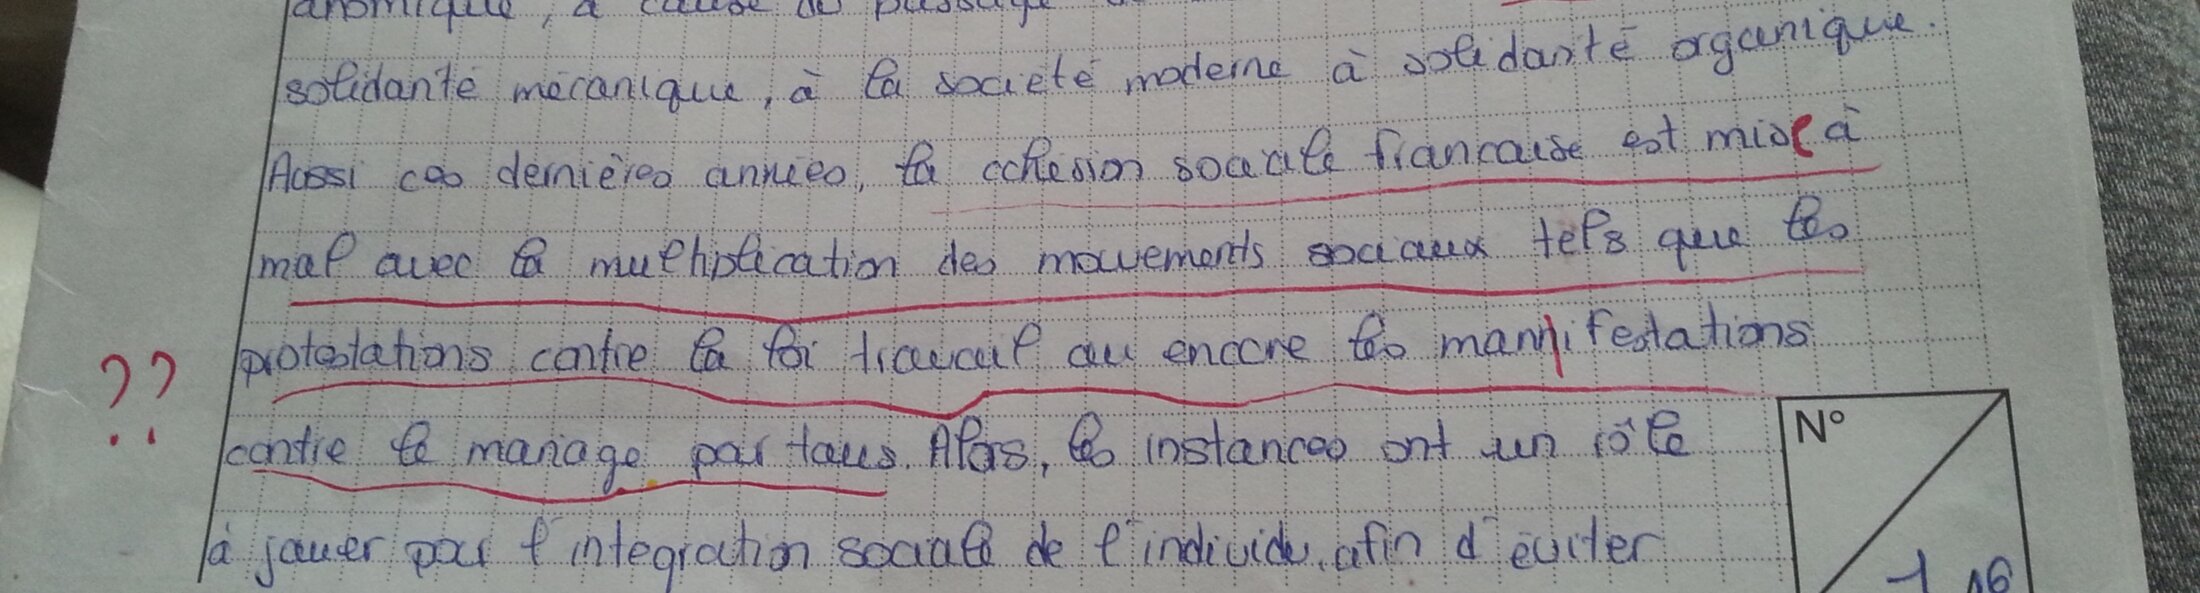 anomique, à cause du passage
solidarité mécanique, à la société moderne à solidarité organique.
Aussi ces dernières années, la cohésion sociale francaise est mise à
mal avec la multiplication des mouvements sociaux tels que les
protestations contre la loi travail ou encore les mannifestations
?? contre le mariage pour tous. Alors, les instances ont un rôle
à jouer pour l'intégration sociale de l'individu, afin d'éviter
N°
16